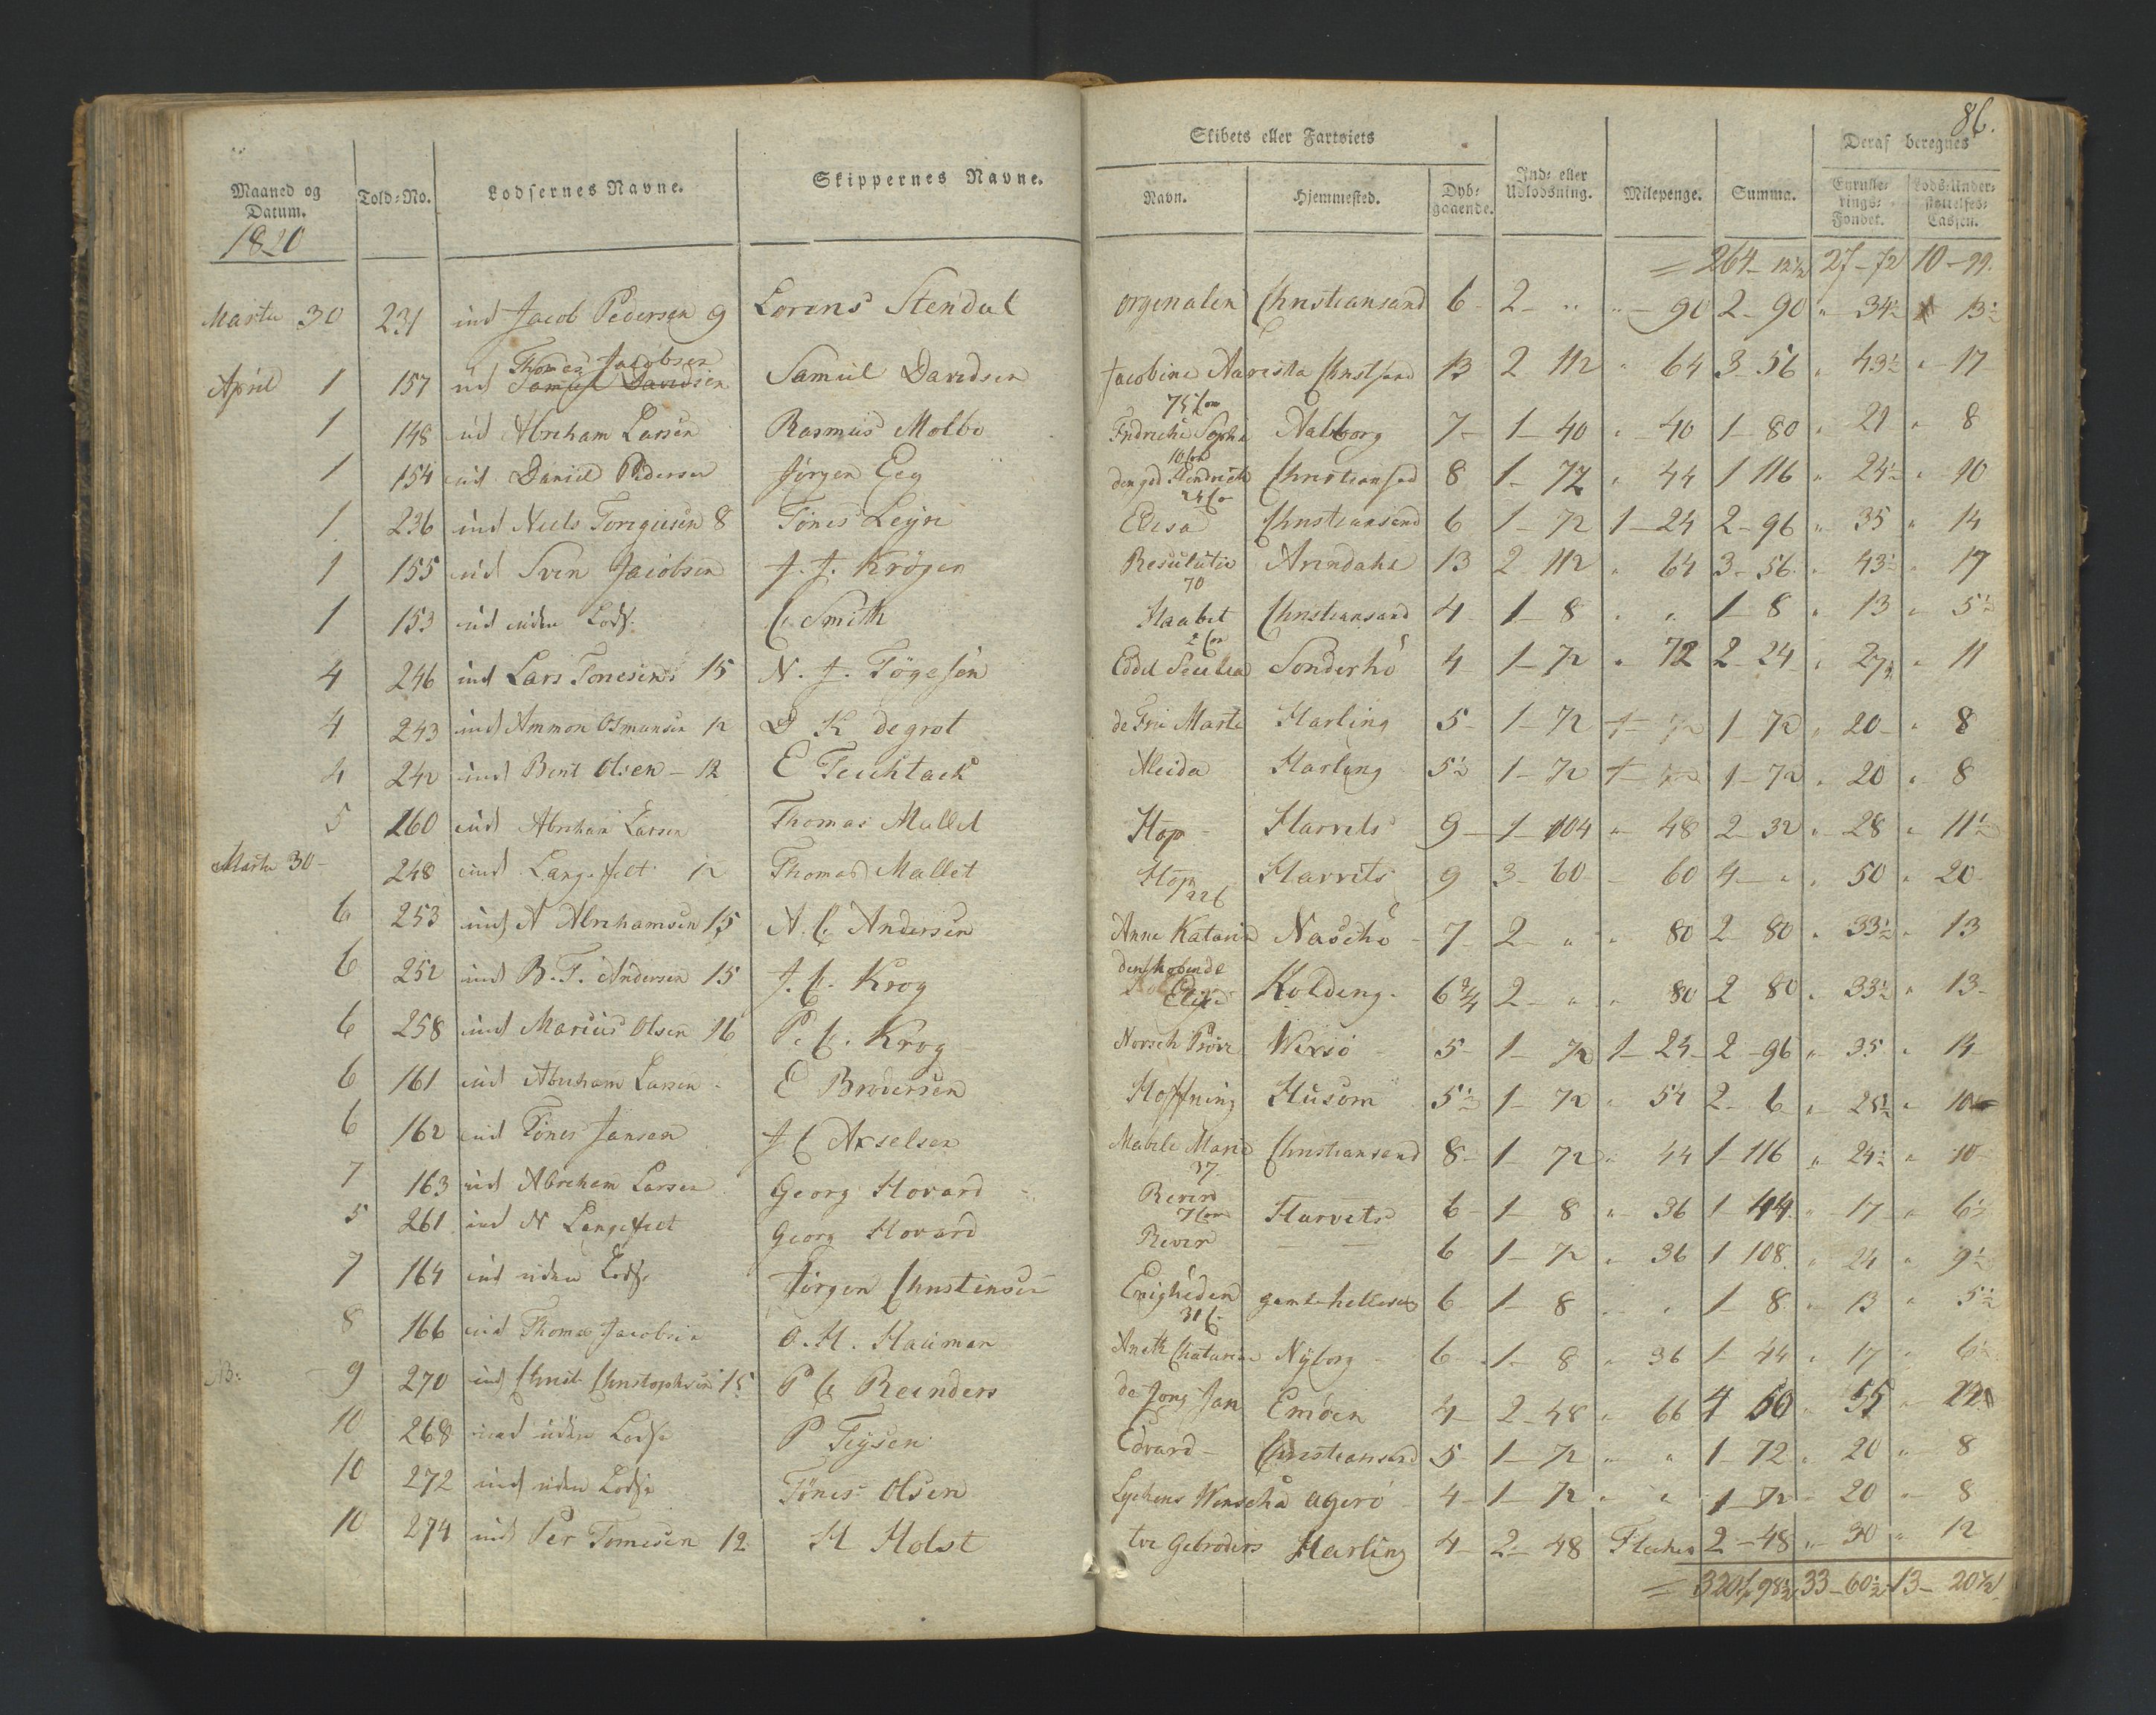 86.
Maaned og Datum. Told-No. Lodsernes Navne. Skippernes Navne. Skibets eller Fartøiets Navn. Hjemmested. Dybgaaende. Ind- eller Udlodsning. Milepenge. Summa. Deraf beregnes Lods-Understøttelses-Cassen.
1820
= 264 - 27 - 72 10 - 99.
Martii 30 231 ind Jacob Pedersen 9 Lorens Stendal Orgenalen Christiansand 6 2 - " " - 90 2 - 90 " 34½ 13½
Thomas Jacobsen
April 1 157 ud Samuel Davidsen Samuel Davidsen Jacobine 13 2 112 " 64 3 - 56 " 43½ " 17
1 148 ud Abreham Larsen Rasmus Molbo Aalborg 7 - 1 - 40 " - 40 1 - 80 " 21 " 8
1 154 ud Daniel Pedersen Jørgen Eeg 8 1 - 72 " 44 1 116 " 24½ " 10
1 236 ind Niels 8 Tønes Christiansand 6 1 - 72 1 - 24 2 - 96 " 35 " 14
1 155 ud Sven Jacobsen J. J. Krøger 13 2 - 112 " 64 3 - 56 " 43½ " 17
70
1 153 ud uden Lods. C. Smith Haabet Christiansand 4 1 - 8 " " 1 - 8 " 13 " 5½
4 246 ind Lars Tonesen 15 N. J. Sonderho 4 1 - 72 " 72 2 - 24 " 27 " 11
4 243 ind Ammon Osmunsen 12 D K degrot Harling 5 - 1 - 72 1 - 72 " 20 - " 8
4 242 ind Bent Olsen - 12 E Aleida Harling 5½ 1 - 72 1 - 72 " 20 " 8
5 160 ud Abreham Larsen Thomas Mallet Hop - Harvits 9 - 1 - 104 " 48 2 - 32 " 28 " 11½
Martii 30 - 248 ind Langefelt 12 Thomas Mallet Hop Harvits 9 3 - 60 - 60 4 - " " 50 " 20
6 253 ind A Abrehamsen 15 A. C. Andersen Anne Katarin 7 - 2 - " " 80 2 80 " 33½ " 13
6 252 ind B. T. Andersen 15 J. C. Krog Kolding. 6¾ 2 - " " 80 2 80 " 33½ " 13
6 258 ind Marius Olsen 16 P. C. Krog 5 - 1 - 72 1 - 24 - 2 - 96 " 35 " 14
6 161 ud Abreham Larsen - E Brodersen Hoffning Husom 5½ 1 - 72 " 54 2 - 6 " 25½ " 10
6 162 ud Tønes Jansen J C Axelsen Christiansand 8 - 1 - 72 " 44 1 116 " 24½ " 10
37
7 163 ud Abreham Larsen Georg Hovard Harvits 6 - 1 - 8 " 36 1 - 44 " 17 " 6½
5 261 ind N Langefelt Georg Hovard River — — 6 - 1 - 72 " 36 1 108 " 24 " 9½
7 164 ud uden Lods. Jørgen Christensen Enigheden 6 1 - 8 " " 1 - 8 " 13 " 5½
8 166 ud Thomas Jacobsen O. H. Hauman Nyborg - 6 - 1 - 8 " 36 1 - 44 " 17 " 6½
NB. - 9 270 ind Christophersen 15 P C Reinders de Jong Jan Emden 4 - 2 - 48 " 66 4 50 " 55 "
10 268 ind uden Lods P Teysen Edvard - Christiansand 5 - 1 - 72 " " 1 - 72 " 20 " 8
10 272 ind uden Lods Tønes Olsen Agerö 4 - 1 - 72 " " 1 - 72 - 20 " 8
10 274 ind Per Tomesen 12 H Holst tve Gebroders Harling 4 - 2 - 48 2 - 48 " 30 " 12
= 320 98½ 33 - 60½ 13 - 20½